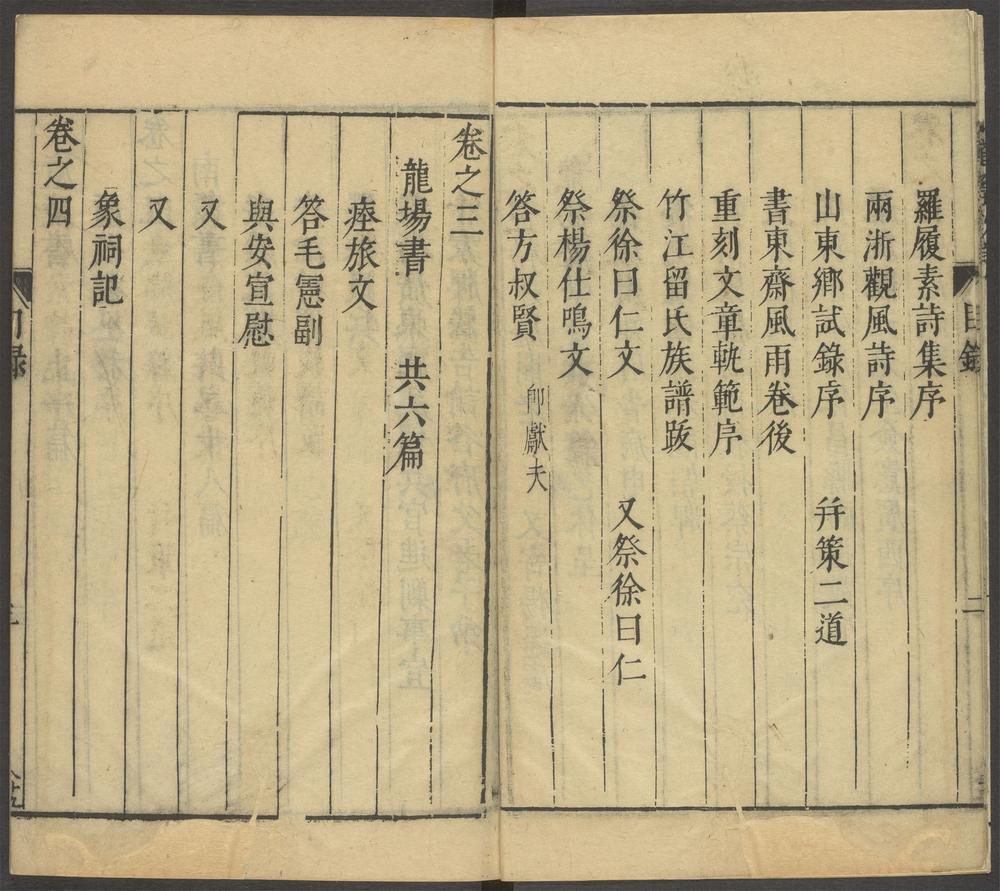 目錄
二
羅履素詩集序
兩浙觀風詩序
山東鄉試錄序 并策二道
書東齋風雨卷後
重刻文章軌範序
竹江留氏族譜跋
祭徐曰仁文 又祭徐曰仁
祭楊仕鳴文
答方叔賢 卽獻夫
卷之三
龍場書 共六篇
瘞旅文
答毛憲副
與安宣慰
又
又
象祠記
卷之四
目錄